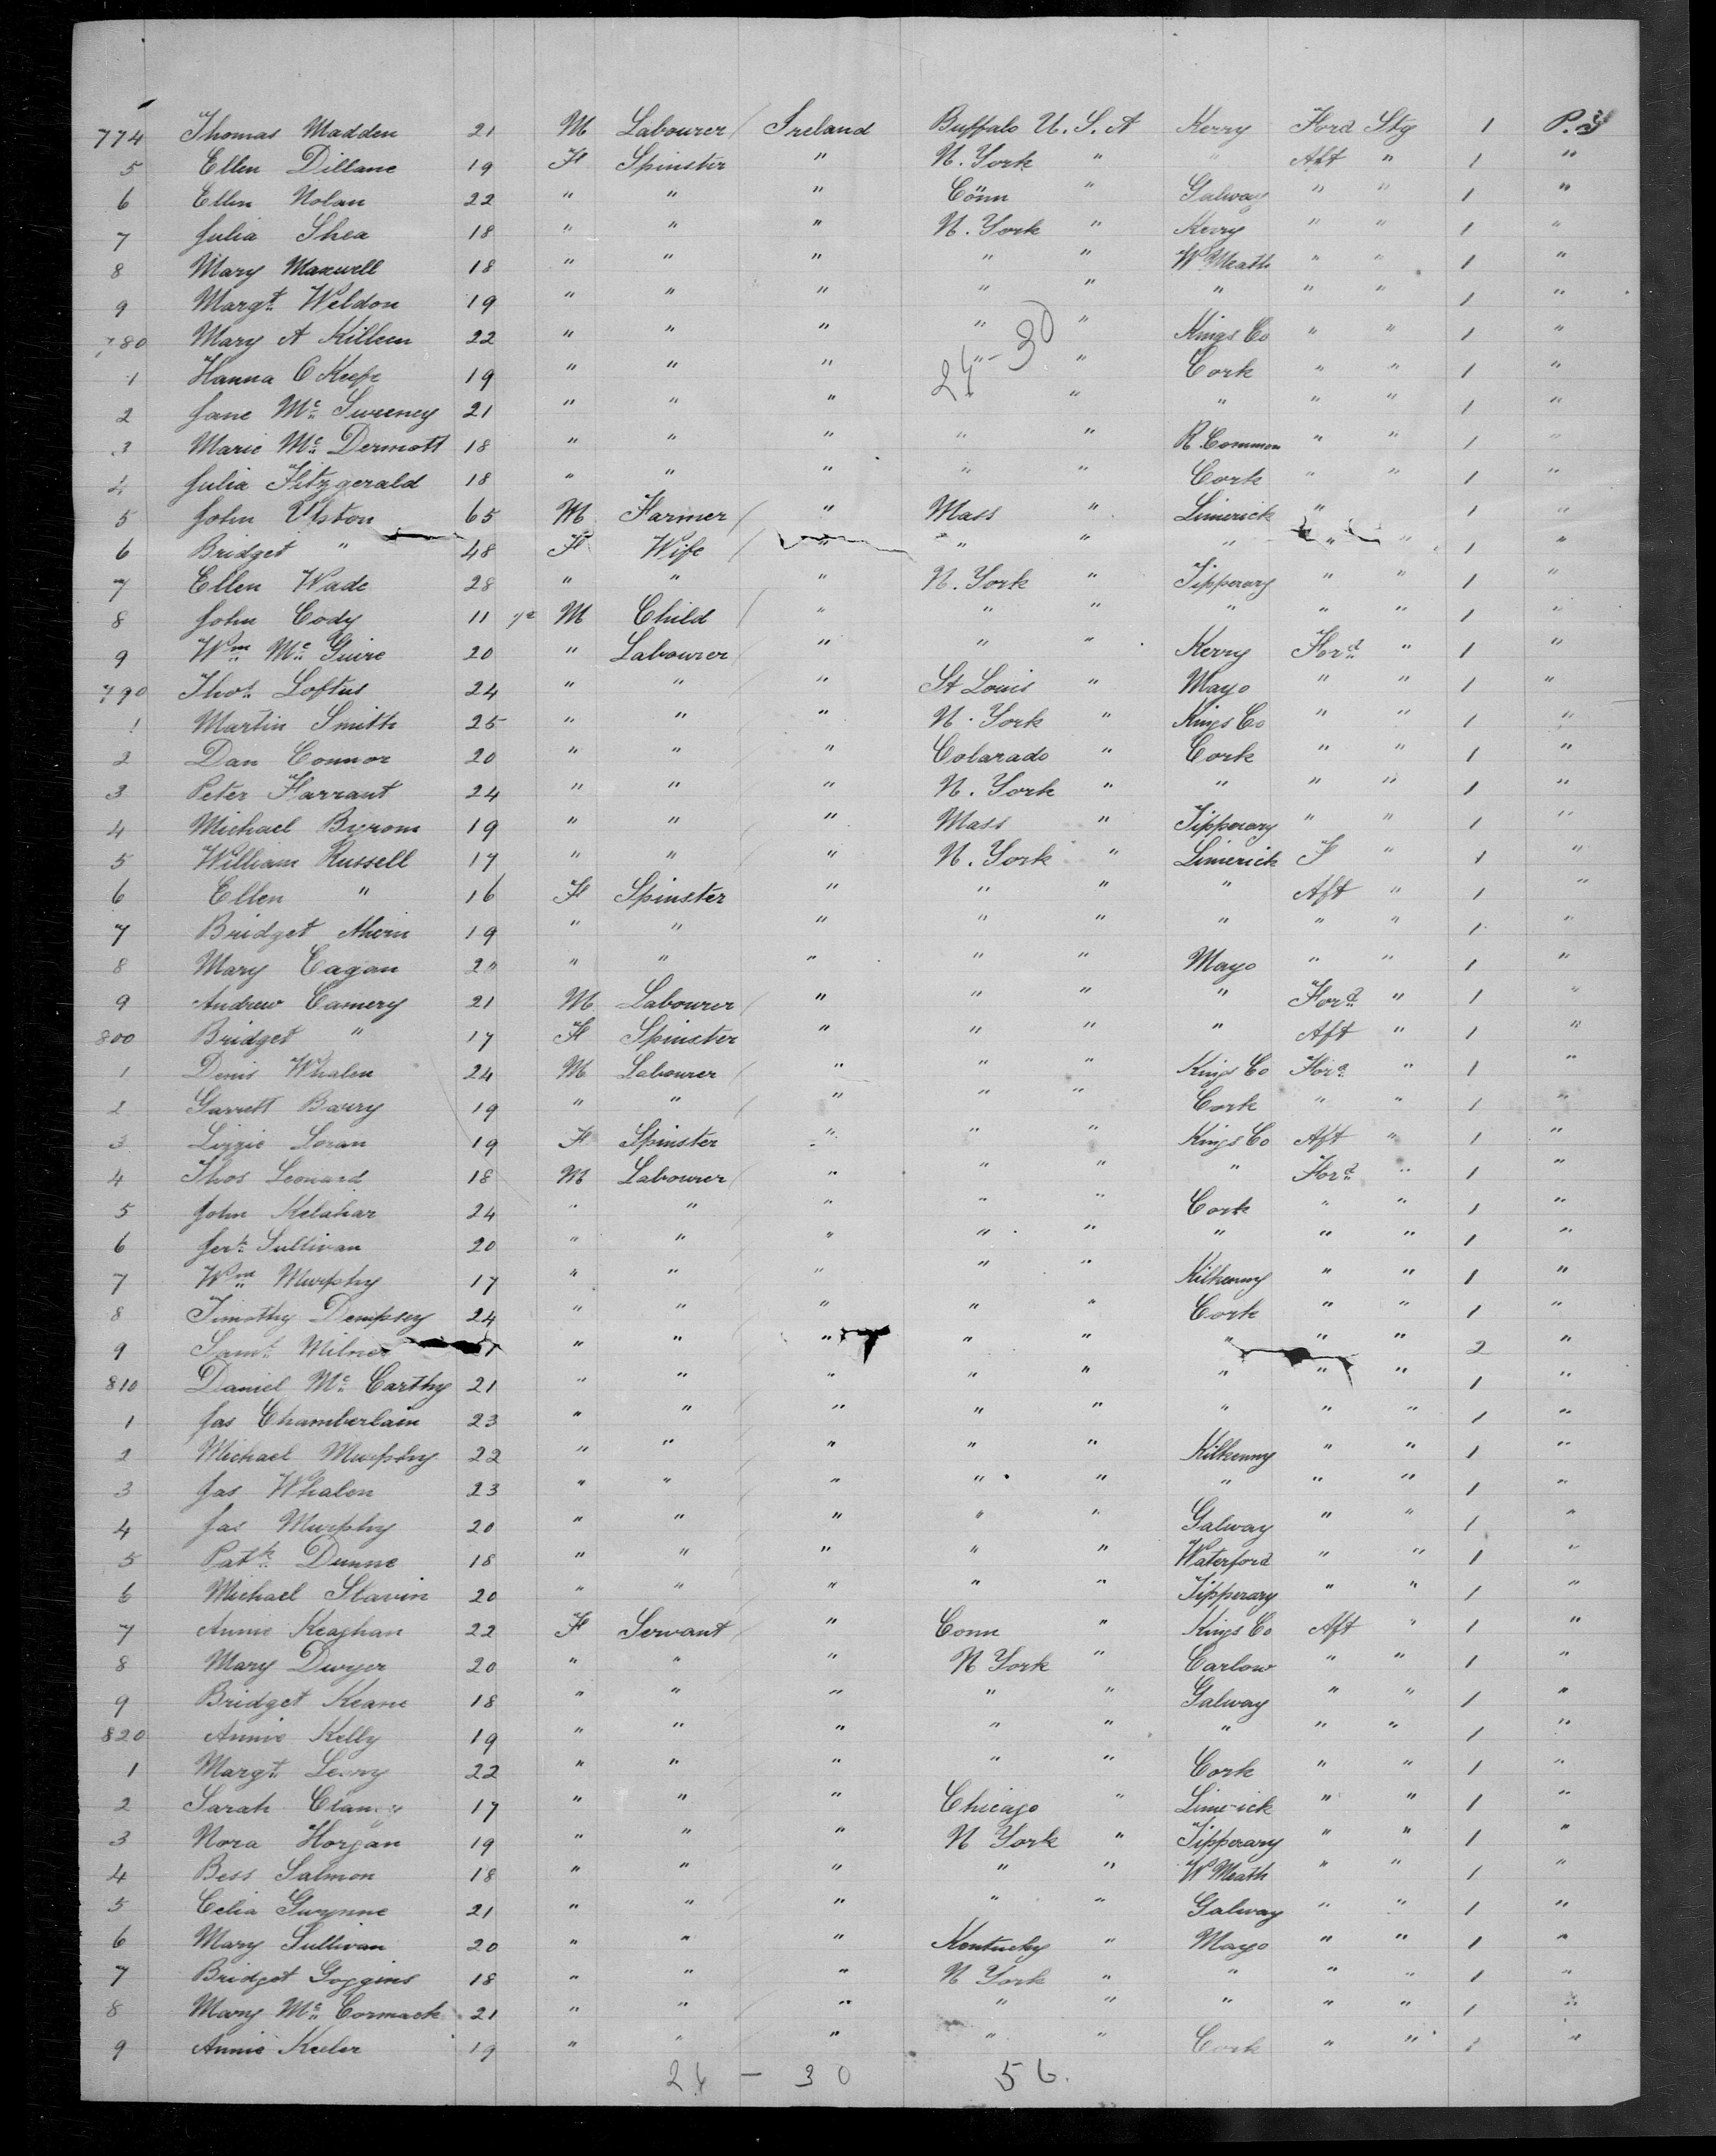 774 Thomas Madden 21 M Labourer / Ireland Buffalo U.S.A Kerry Ford Stg 1 P.
5 Ellen Dillane 19 F Spinster " N. York " " Aft " 1 "
6 Ellen Nolan 22 " " " Conn " Galway " " 1 "
7 Julia Shea 18 " " " N. York " Kerry " " 1 "
8 Mary Maxwell 18 " " " " " W Meath " " 1 "
9 Margt Weldon 19 " " " " " " " " 1 "
780 Mary A Killeen 22 " " " " " Kings Co " " 1 "
1 Hanna O Keefe 19 " " " " " Cork " " 1 "
24 - 30
2 Jane Mc Sweeney 21 " " " " " " " 1 "
3 Marie Mc Dermott 18 " " " " " R Common " " 1 "
4 Julia Fitzgerald 18 " " " " " Cork " " 1 "
5 John Upton 65 M Farmer / " Mass " Limerick " 1 "
6 Bridget " 48 F Wife / " " " " " " 1 "
7 Ellen Wade 28 " " " N. York " Tipperary " " 1 "
8 John Cody 11 M Child / " " " " " " 1 "
9 Wm Mc Guire 20 " Labourer " " " Kerry Ford " 1 "
790 Thos Loftus 24 " " " St Louis " Mayo " " 1 "
1 Martin Smith 25 " " " N. York " Kings Co " " 1 "
2 Dan Connor 20 " " " Colarado " Cork " " 1 "
3 Peter Farrant 24 " " " N. York " " " " 1 "
4 Michael Byrom 19 " " " Mass " Tipperary " " 1 "
5 William Russell 17 " " " N. York " Limerick F " 1 "
6 Ellen " 16 F Spinster " " " " Aft " 1 "
7 Bridget Ahern 19 " " " " " " " " 1 "
8 Mary Eagan 20 " " " " " Mayo " " 1 "
9 Andrew Camery 21 M Labourer / " " " " Ford " 1 "
800 Bridget " 17 F Spinster " " " " Aft " 1 "
1 Denis Whalen 24 M Labourer / " " " Kings Co Ford " 1 "
2 Garrett Barry 19 " " / " " " Cork " " 1 "
3 Lizzie Loran 19 F Spinster " " " Kings Co Aft " 1 "
4 Thos Leonard 18 M Labourer / " " " " Ford " 1 "
5 John Kelahar 24 " " " " " Cork " " 1 "
6 Jerh Sullivan 20 " " " " " " " " 1 "
7 Wm Murphy 17 " " " " " Kilkenny " " 1 "
8 Timothy Dempsey 24 " " " " " Cork " " 1 "
9 Saml Milner " " " " " " " " 2 "
810 Daniel Mc Carthy 21 " " " " " " " " 1 "
1 Jas Chamberlain 23 " " " " " " " " 1 "
2 Michael Murphy 22 " " " " " Kilkenny " " 1 "
3 Jas Whalen 23 " " " " " " " " 1 "
4 Jas Murphy 20 " " " " " Galway " " 1 "
5 Patk Dunne 18 " " " " " Waterford " " 1 "
6 Michael Slavin 20 " " " " " Tipperary " " 1 "
7 Annie Keaghan 22 F Servant " Conn " Kings Co Aft " 1 "
8 Mary Dwyer 20 " " " N York " Carlow " " 1 "
9 Bridget Keane 18 " " " " " Galway " " 1 "
820 Annie Kelly 19 " " " " " " " " 1 "
1 Margt Leary 22 " " " " " Cork " " 1 "
2 Sarah Clancy 17 " " " Chicago " Limerick " " 1 "
3 Nora Horgan 19 " " " N York " Tipperary " " 1 "
4 Bess Salmon 18 " " " " " W Meath " " 1 "
5 Celia Gwynne 21 " " " " " Galway " " 1 "
6 Mary Sullivan 20 " " " Kentucky " Mayo " " 1 "
7 Bridget Goggins 18 " " " N York " " " " 1 "
8 Mary Mc Cormack 21 " " " " " " " " 1 "
9 Annie Keeler 19 " " " " " Cork " " 1 "
24 - 30 56.